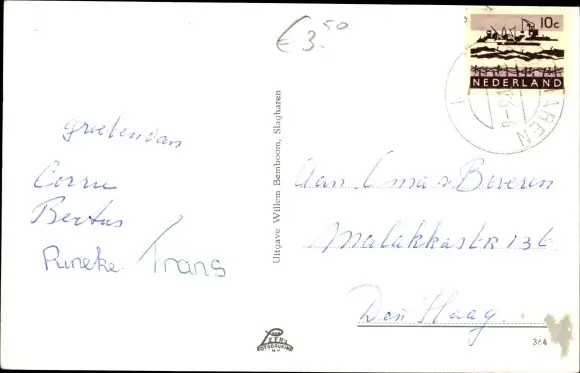 € 3.50
10c
NEDERLAND
groeten van
Corrie
Bertus
Rineke Frans
Uitgave Willem Bemboom, Slagharen
Aan Oma v Beveren
Malakkastr 136
Den Haag.
364